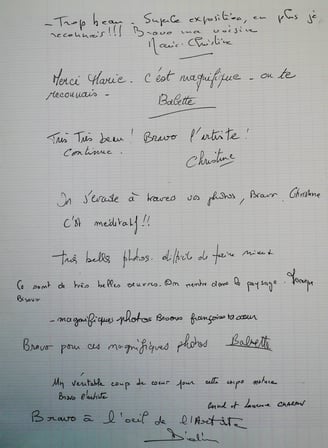 - Trop beau - Superbe exposition, en plus je
reconnais!!! Bravo ma voisine
Marie-Christine
Merci Marie. C'est magnifique - on te
reconnais -
Babette
Très Très beau! Bravo l'artiste!
Continue.
Christine
On s'évade à travers vos photos, Bravo. Christine
C'est méditatif!!
très belles photos. difficile de faire mieux
Ce sont de très belles oeuvres. On rentre dans le paysage.
Bravo
- magnifiques photos Bravo françoise
Bravo pour ces magnifiques photos Babette
Un véritable coup de coeur pour cette expo nature
Bravo l'artiste
et Laurence
Bravo à l'oeil de l'Artiste